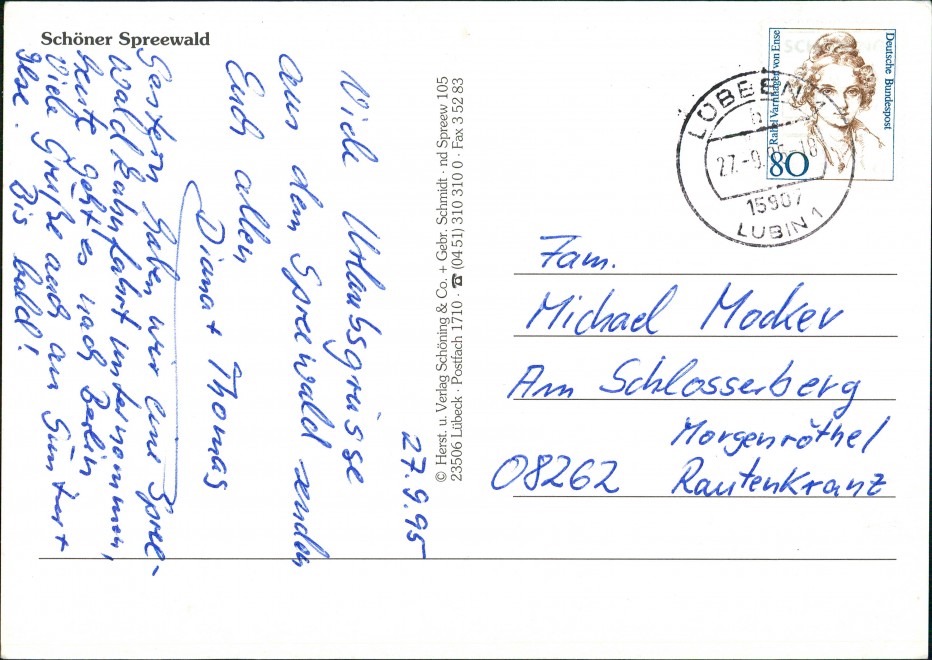 Schöner Spreewald
27.9.95
Viele Urlaubsgrüsse
aus dem Spreewald senden
Euch allen
Diana + Thomas
Gestern haben wir eine Spree-
waldkahnfahrt unternommen,
heute geht es nach Berlin
Viele Grüße auch an Günter +
Bis bald!
© Herst. u. Verlag Schöning & Co. + Gebr. Schmidt · nd Spreew 105
23506 Lübeck · Postfach 1710 · ☎ (04 51) 310 310 0 · Fax 3 52 83
Deutsche Bundespost
Rahel Varnhagen von Ense
80
LÜBBEN
b
27.-9.95-18
15907
LUBIN 1
Fam.
Michael Mocker
Am Schlosserberg
Morgenröthe/
08262 Rautenkranz